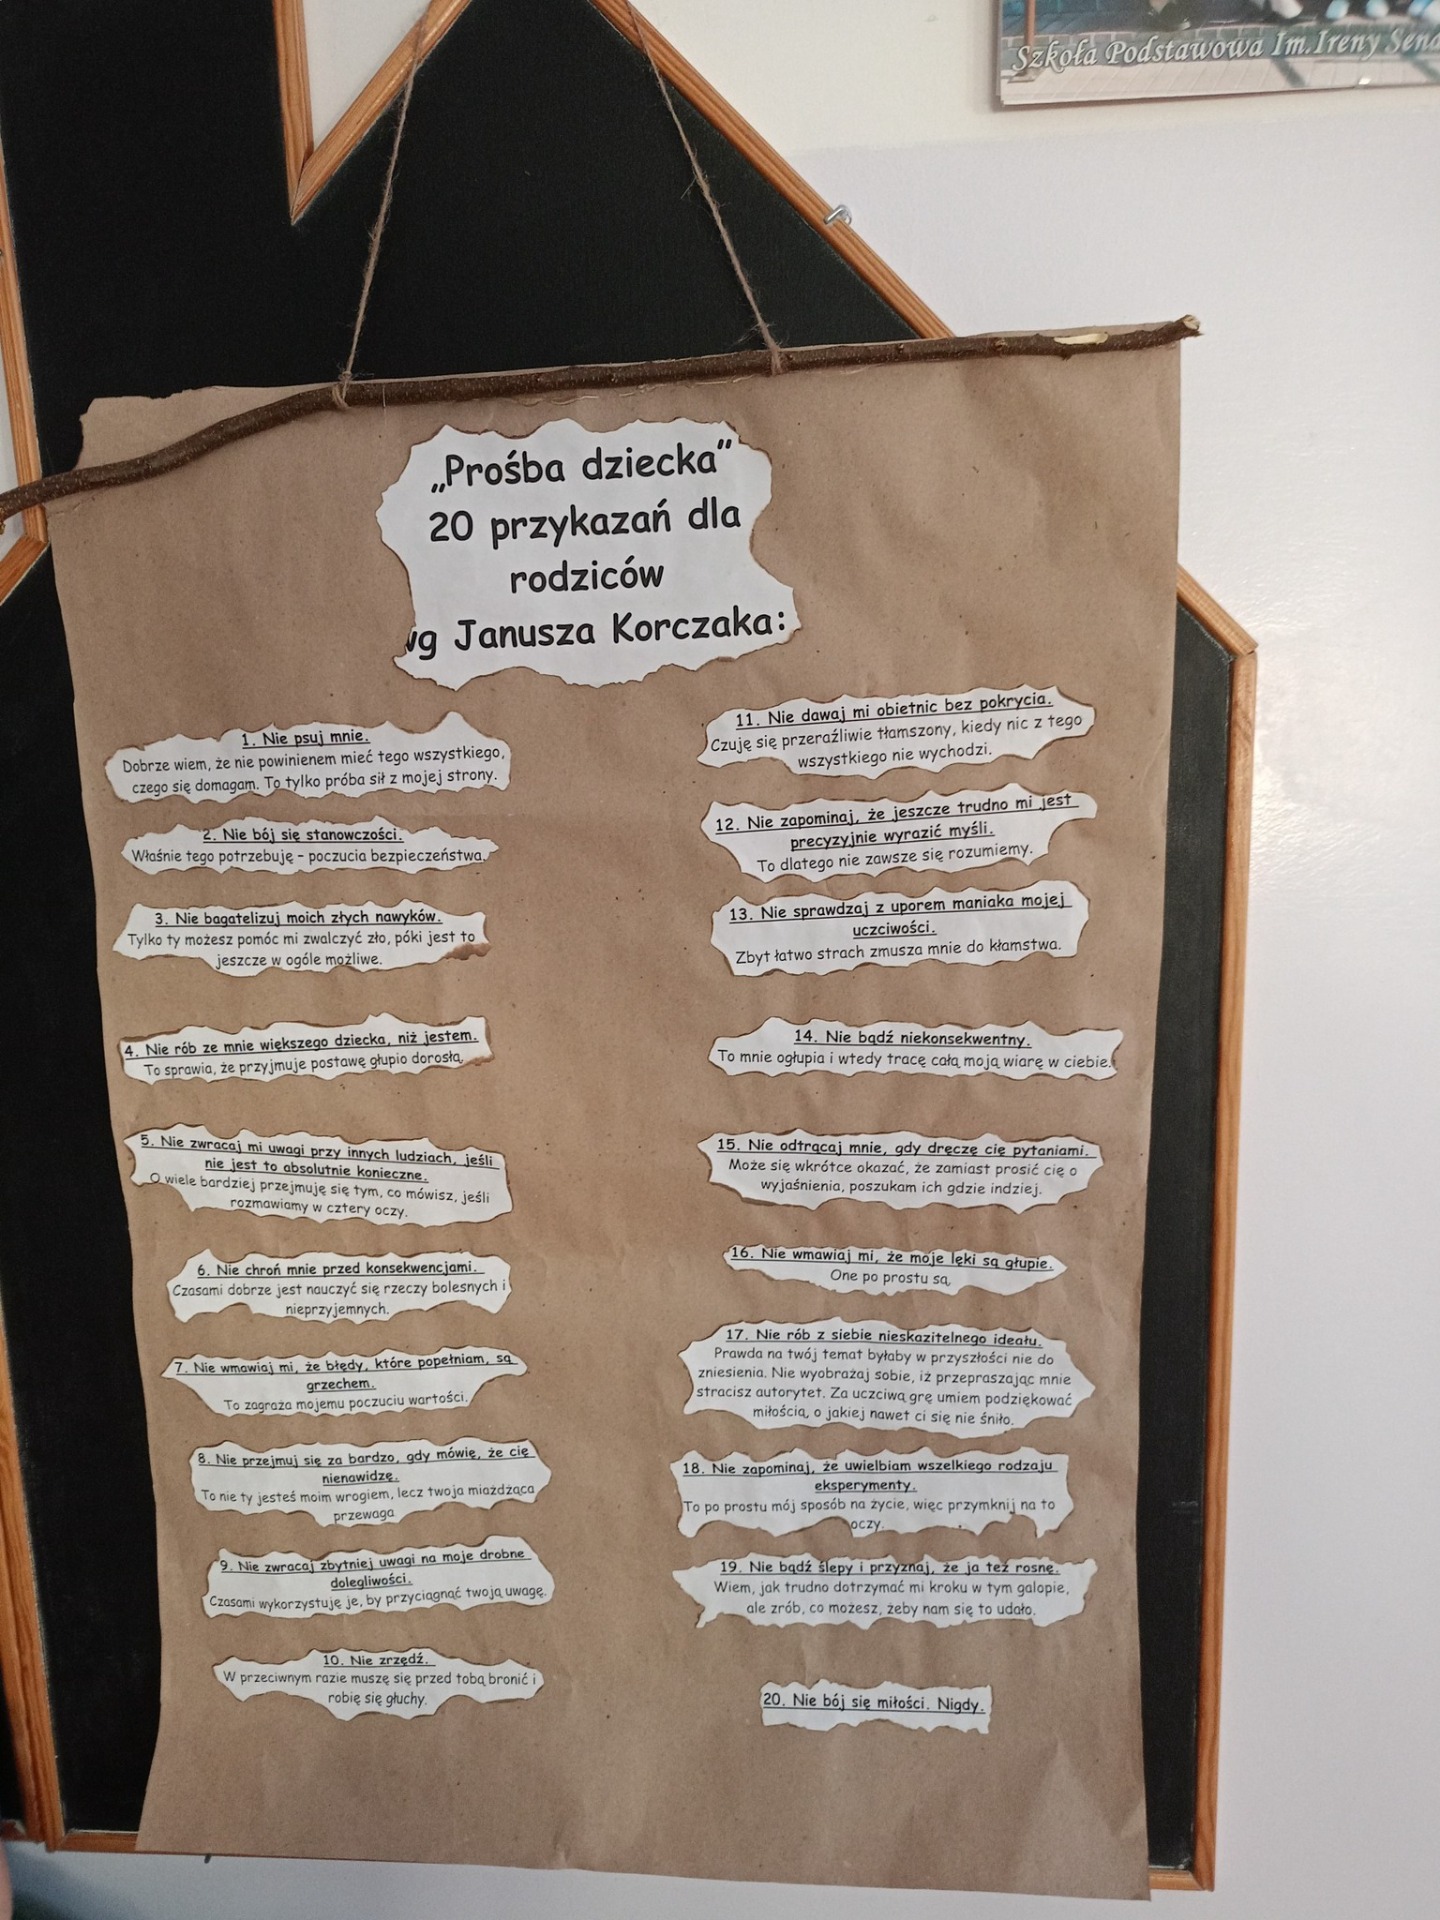 Szkoła Podstawowa Im.Ireny
„Prośba dziecka"
20 przykazań dla
rodziców
wg Janusza Korczaka:
1. Nie psuj mnie.
Dobrze wiem, że nie powinienem mieć tego wszystkiego,
czego się domagam. To tylko próba sił z mojej strony.
2. Nie bój się stanowczości.
Właśnie tego potrzebuję - poczucia bezpieczeństwa.
3. Nie bagatelizuj moich złych nawyków.
Tylko ty możesz pomóc mi zwalczyć zło, póki jest to
jeszcze w ogóle możliwe.
4. Nie rób ze mnie większego dziecka, niż jestem.
To sprawia, że przyjmuje postawę głupio dorosłą
5. Nie zwracaj mi uwagi przy innych ludziach, jeśli
nie jest to absolutnie konieczne.
O wiele bardziej przejmuję się tym, co mówisz, jeśli
rozmawiamy w cztery oczy.
6. Nie chroń mnie przed konsekwencjami.
Czasami dobrze jest nauczyć się rzeczy bolesnych i
nieprzyjemnych.
7. Nie wmawiaj mi, że błędy, które popełniam, są
grzechem.
To zagraża mojemu poczuciu wartości.
8. Nie przejmuj się za bardzo, gdy mówię, że cię
nienawidzę.
To nie ty jesteś moim wrogiem, lecz twoja miażdżąca
przewaga
9. Nie zwracaj zbytniej uwagi na moje drobne
dolegliwości.
Czasami wykorzystuję je, by przyciągnąć twoją uwagę.
10. Nie zrzędź.
W przeciwnym razie muszę się przed tobą bronić i
robię się głuchy.
11. Nie dawaj mi obietnic bez pokrycia.
Czuję się przeraźliwie tłamszony, kiedy nic z tego
wszystkiego nie wychodzi.
12. Nie zapominaj, że jeszcze trudno mi jest
precyzyjnie wyrazić myśli.
To dlatego nie zawsze się rozumiemy.
13. Nie sprawdzaj z uporem maniaka mojej
uczciwości.
Zbyt łatwo strach zmusza mnie do kłamstwa.
14. Nie bądź niekonsekwentny.
To mnie ogłupia i wtedy tracę całą moją wiarę w ciebie.
15. Nie odtrącaj mnie, gdy dręczę cię pytaniami.
Może się wkrótce okazać, że zamiast prosić cię o
wyjaśnienia, poszukam ich gdzie indziej.
16. Nie wmawiaj mi, że moje lęki są głupie.
One po prostu są.
17. Nie rób z siebie nieskazitelnego ideału.
Prawda na twój temat byłaby w przyszłości nie do
zniesienia. Nie wyobrażaj sobie, iż przepraszając mnie
stracisz autorytet. Za uczciwą grę umiem podziękować
miłością, o jakiej nawet ci się nie śniło.
18. Nie zapominaj, że uwielbiam wszelkiego rodzaju
eksperymenty.
To po prostu mój sposób na życie, więc przymknij na to
oczy.
19. Nie bądź ślepy i przyznaj, że ja też rosnę.
Wiem, jak trudno dotrzymać mi kroku w tym galopie,
ale zrób, co możesz, żeby nam się to udało.
20. Nie bój się miłości. Nigdy.